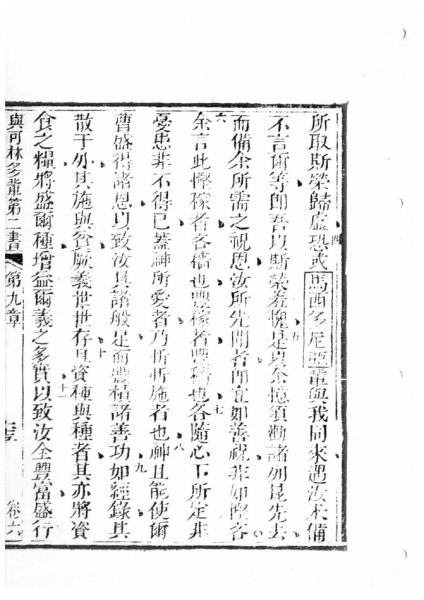 所取斯榮歸虛四恐或馬西多尼亞輩與我同來遇汝未備
不言爾等即吾以斯榮羞愧五足矣余憶須勸諸列昆先去
而備余所需之視恩汝所先聞者即宜如善視非如慳吝
六余言此慳稼者吝穡也豐稼者豐穡也七各隨心下所定非
憂患非不得已蓋神所愛者乃忻忻施者也八神且能使爾
曹盛得諸恩以致汝具諸般足而豐積諸善功九如經錄其
散于外其施與貧厥義世世存十且資種與種者其亦將資
食之糧將盛爾種增益爾義之多實十一以致汝全豐富盛行
與可林多輩第二書 第九章 卷六